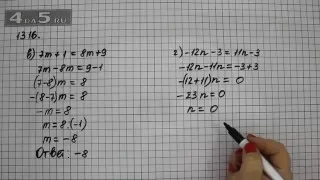 4DA5.RU
1316.
в) 7m + 1 = 8m + 9
7m - 8m = 9 - 1
(7-8)m = 8
-(8-7)m = 8
-m = 8
m = 8·(-1)
m = -8
Ответ: -8
г) -12n - 3 = 11n - 3
-12n - 11n = -3 + 3
-(12+11)n = 0
-23n = 0
n = 0